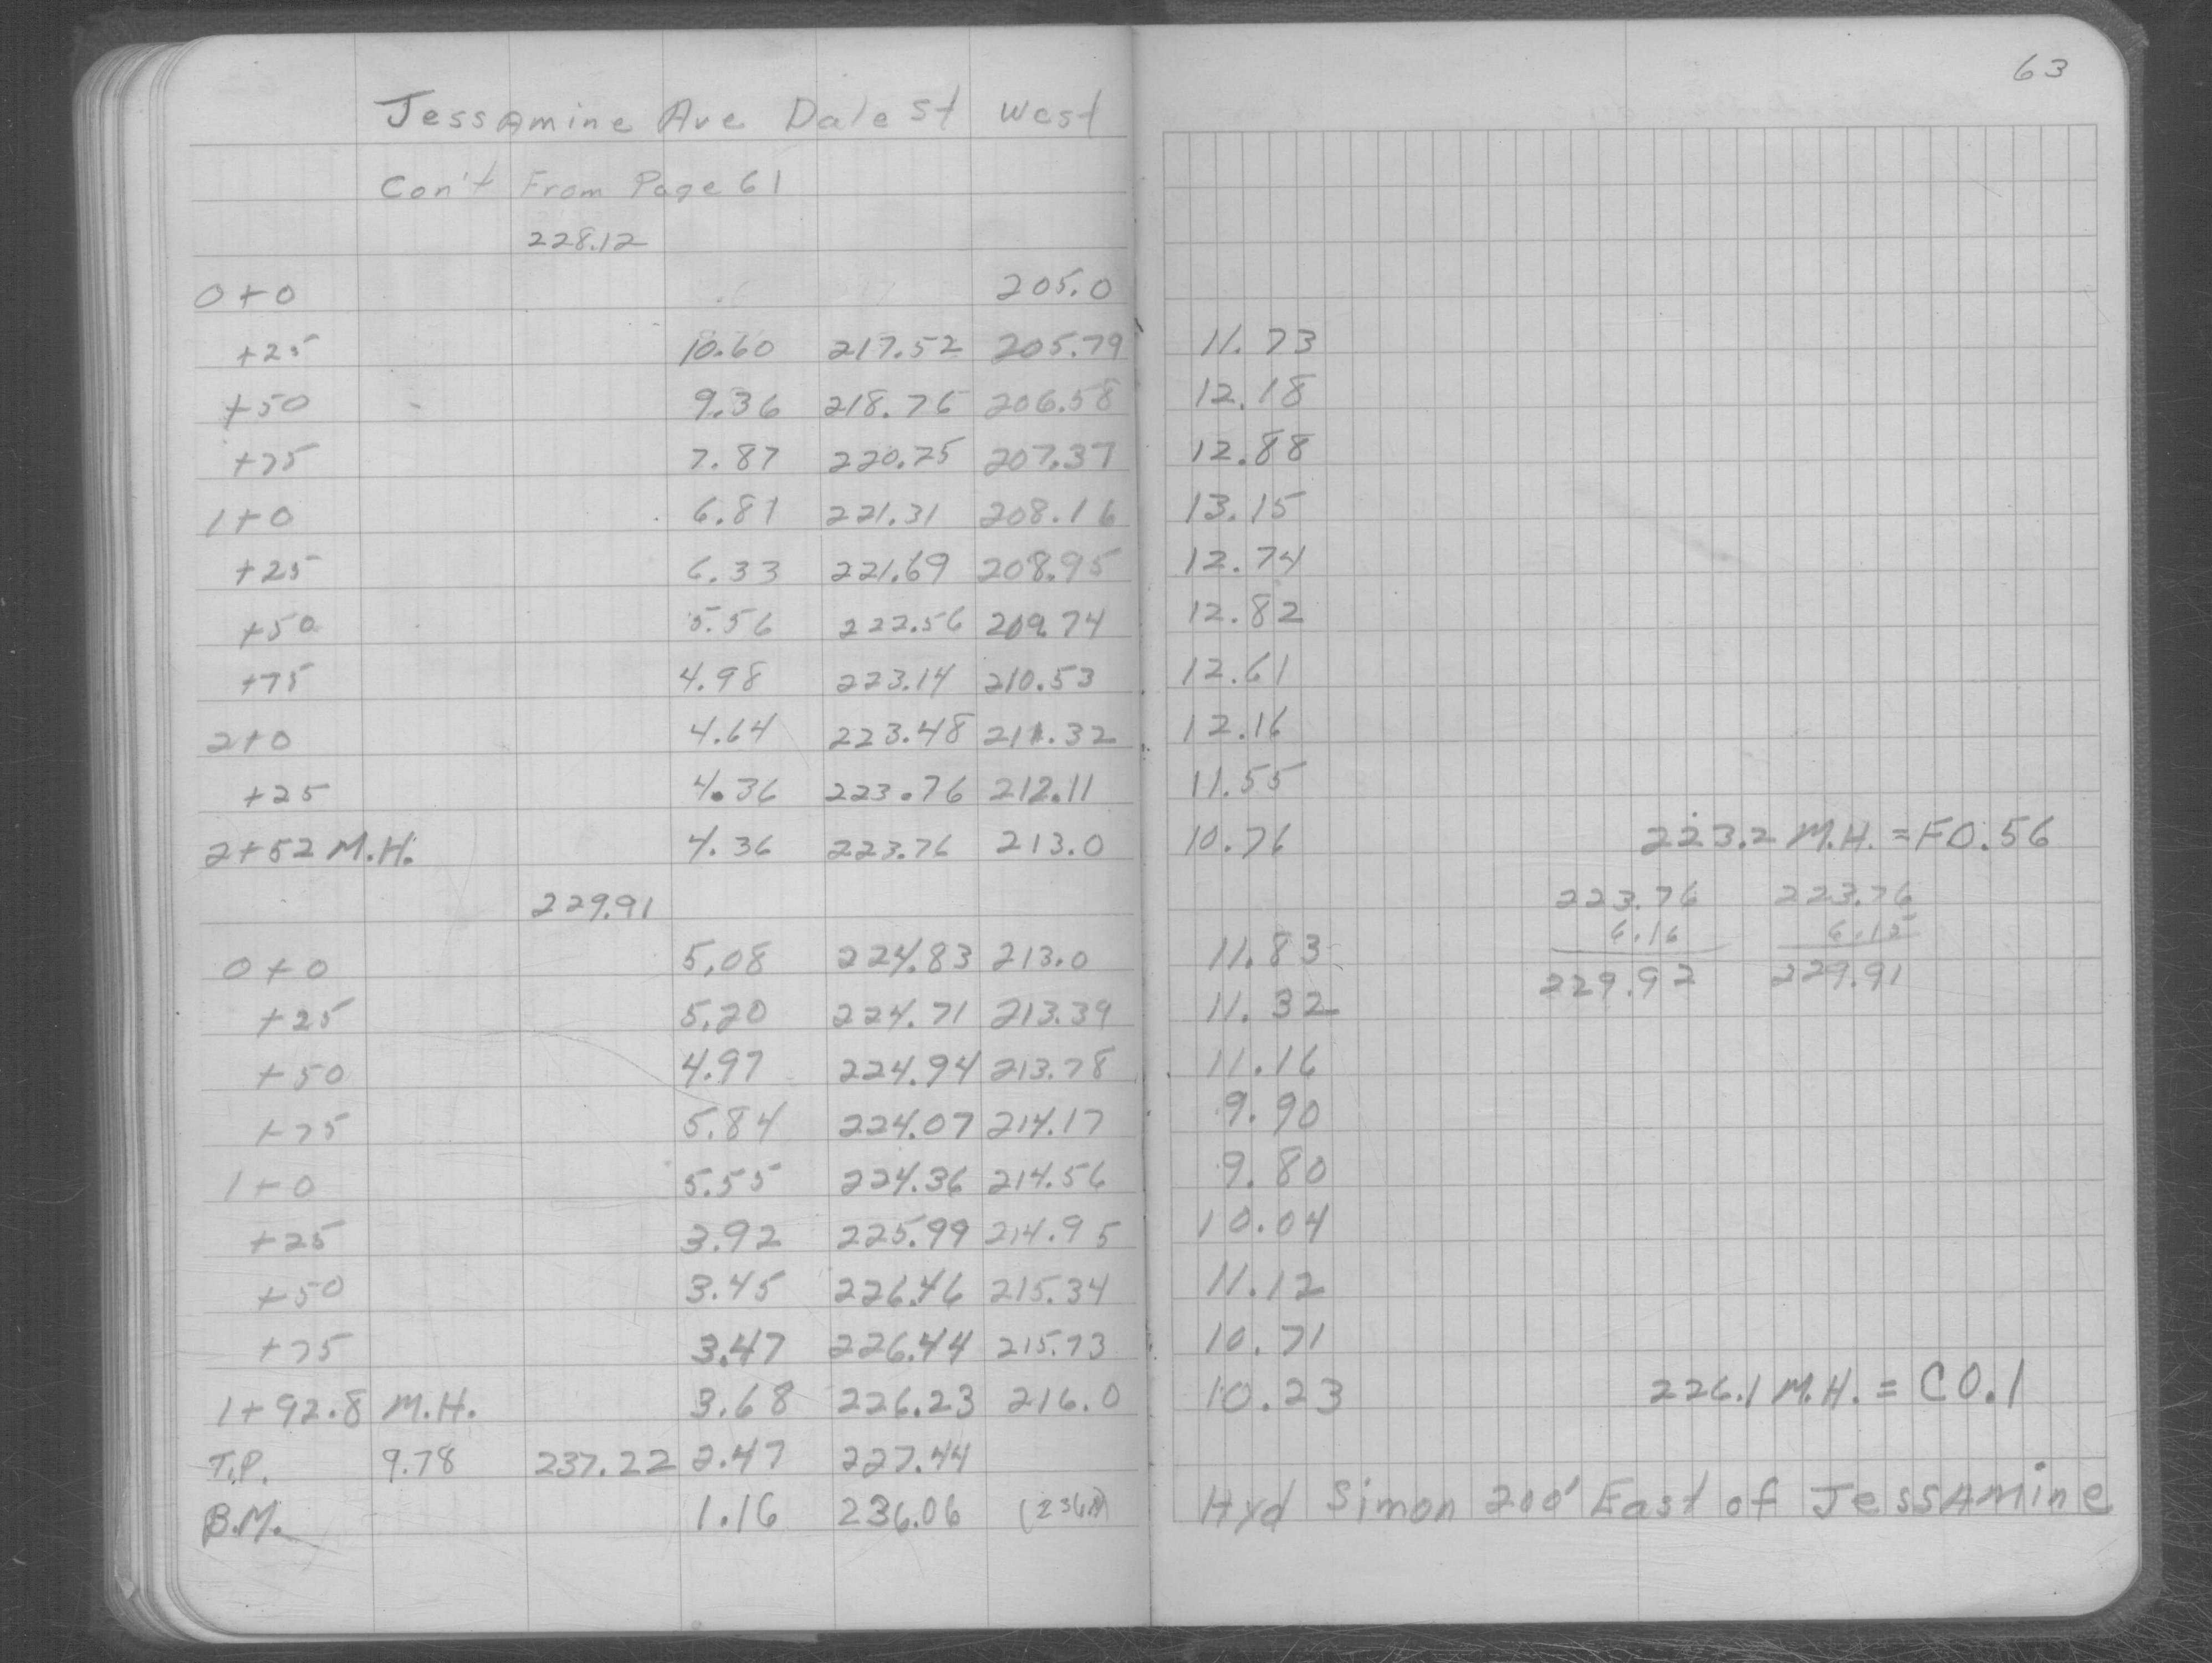 63
Jessamine Ave Dale St West
Con't From Page 61
228.12
0+0 205.0
+25 10.60 217.52 205.79 11.73
+50 9.36 218.76 206.58 12.18
+75 7.87 220.25 207.37 12.88
1+0 6.81 221.31 208.16 13.15
+25 6.33 221.69 208.95 12.74
+50 5.56 222.56 209.74 12.82
+75 4.98 223.14 210.53 12.61
2+0 4.64 223.48 211.32 12.16
+25 4.36 223.76 212.11 11.55
2+52 M.H. 4.36 223.76 213.0 10.76 223.2 M.H. = F0.56
229.91 223.76 223.76
6.16 6.15
0+0 5.08 224.83 213.0 11.83 229.92 229.91
+25 5.20 224.71 213.39 11.32
+50 4.97 224.94 213.78 11.16
+75 5.84 224.07 214.17 9.90
1+0 5.55 224.36 214.56 9.80
+25 3.92 225.99 214.95 10.04
+50 3.45 226.46 215.34 11.12
+75 3.47 226.44 215.73 10.71
1+92.8 M.H. 3.68 226.23 216.0 10.23 226.1 M.H. = C0.1
T.P. 9.78 237.22 2.47 227.44
B.M. 1.16 236.06 Hyd Simon 200' East of Jessamine